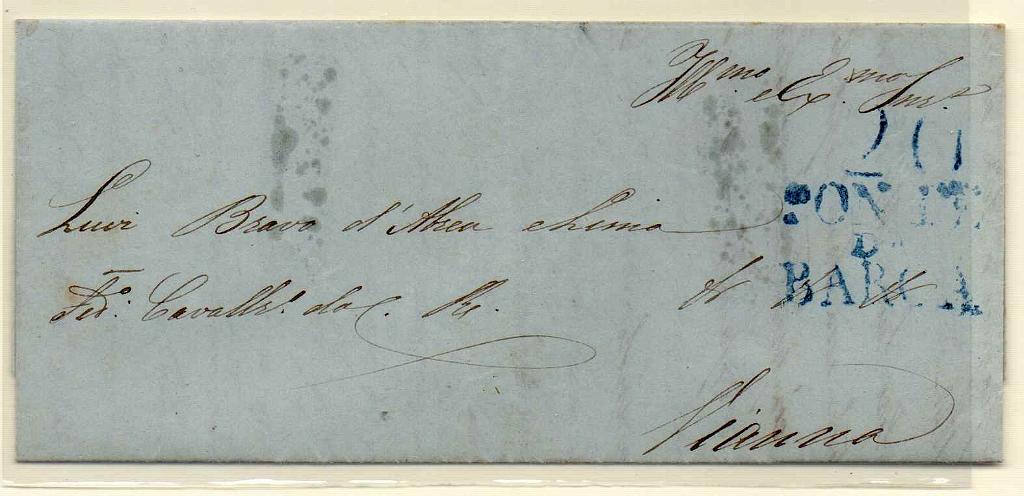 Illmo e Exmo Snr.
20
PONTE
DA
BARCA
Luis Bravo d'Abreu e Lima
Fid.º Cavallr.º da C. R.
Vianna